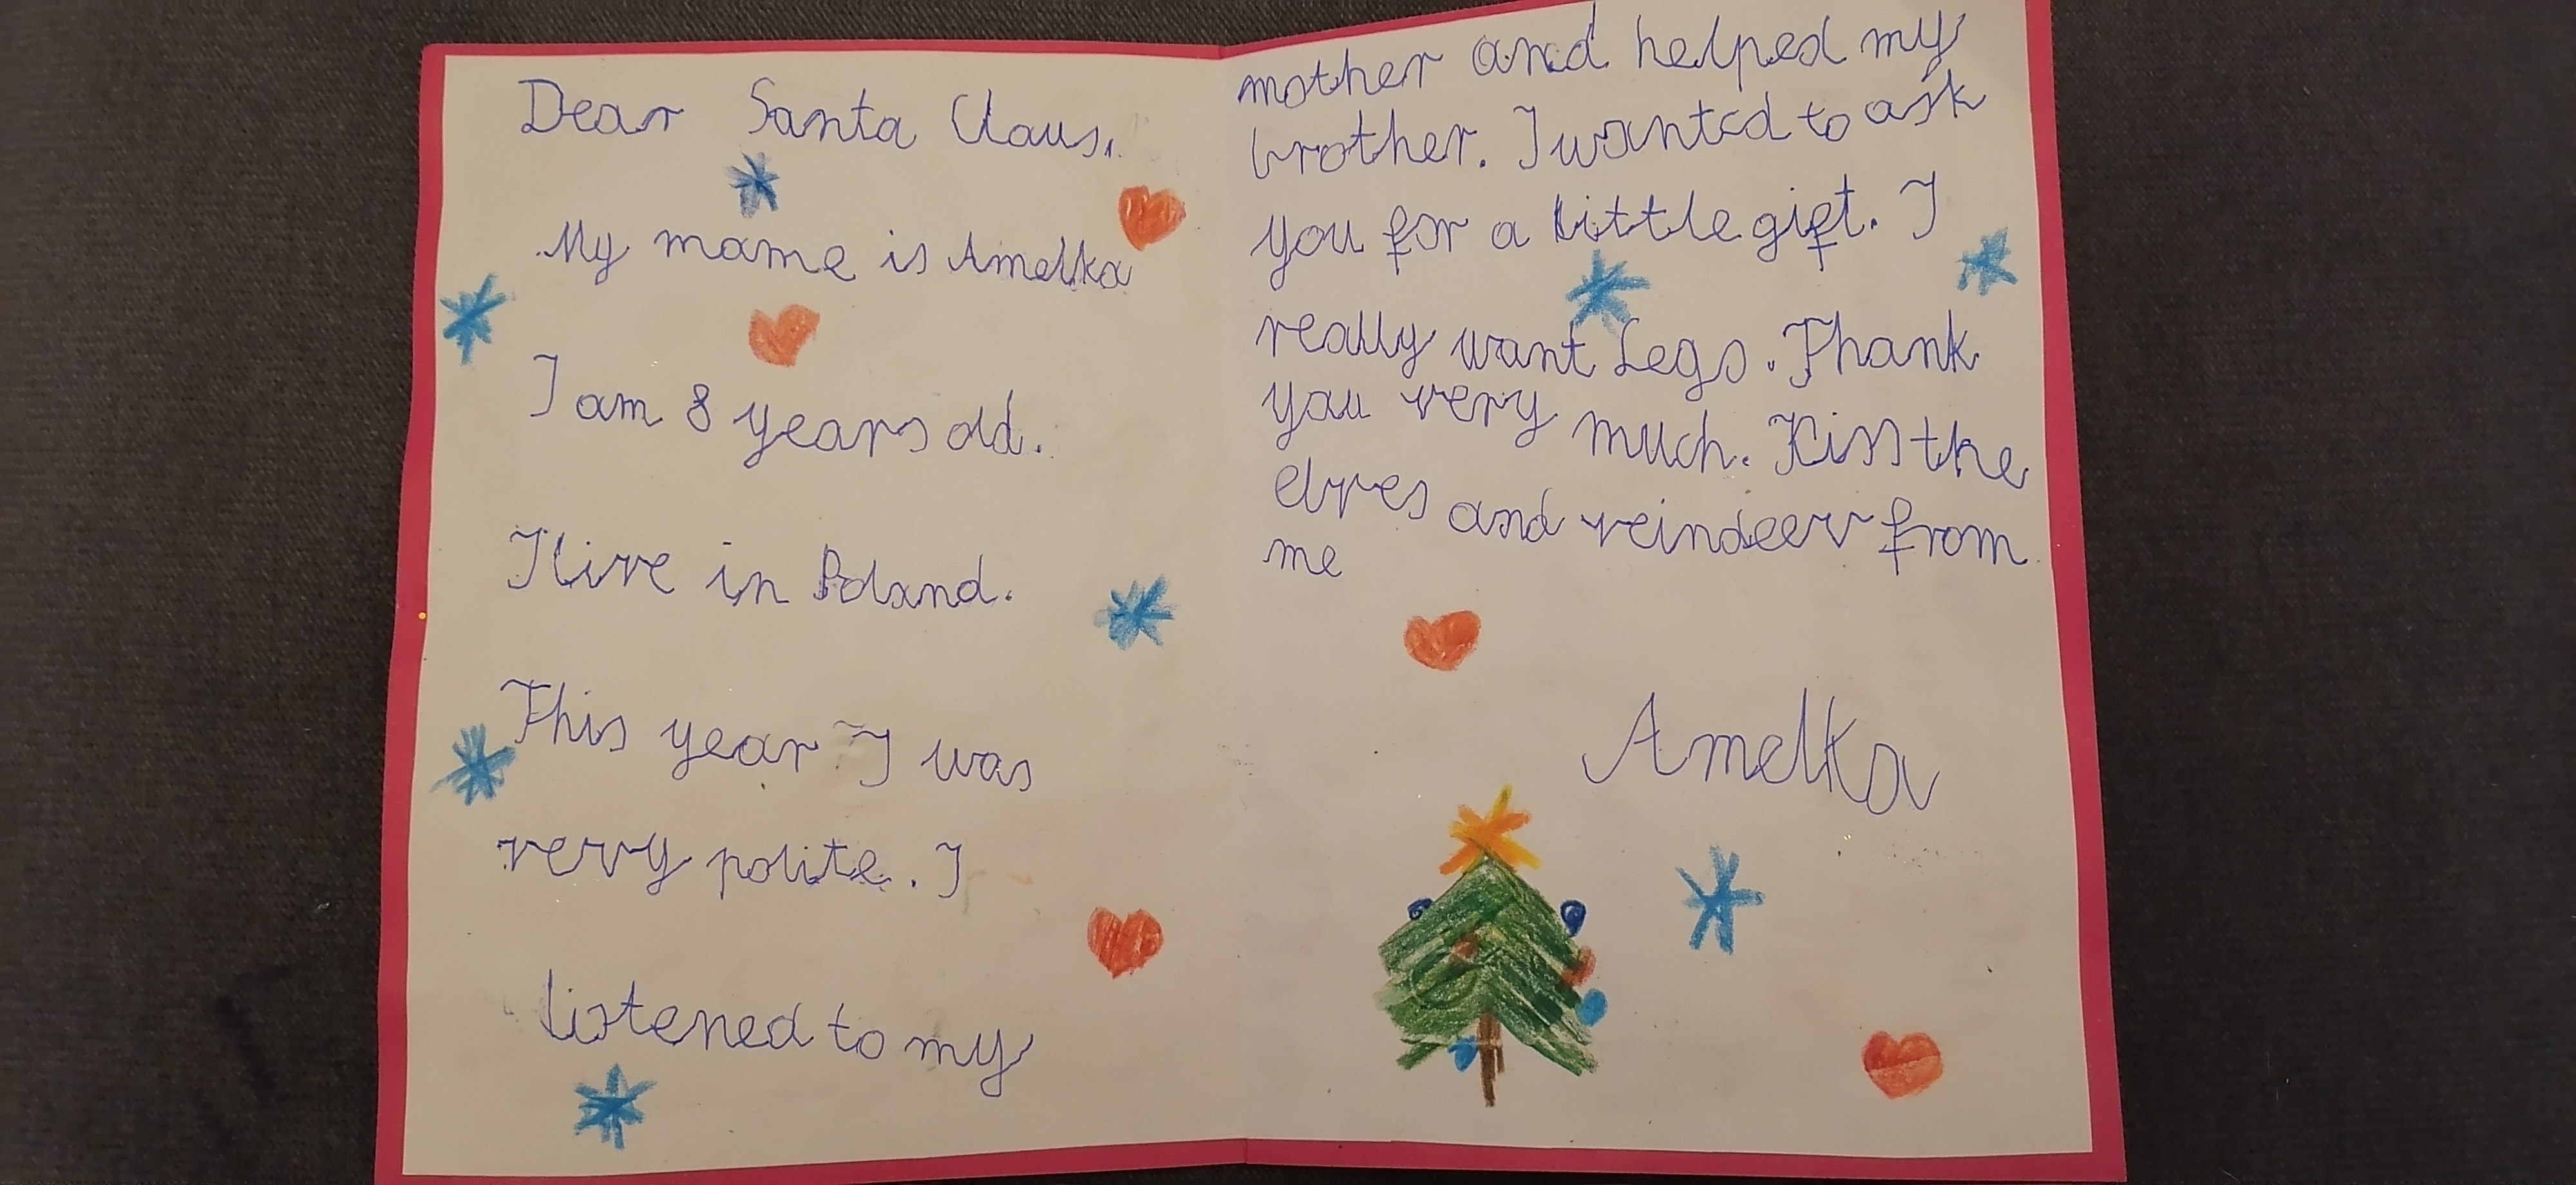 Dear Santa Claus,
My mame is Amelka
I am 8 years old.
I live in Poland.
This year I was
very polite. I
listened to my
mother and helped my
brother. I wanted to ask
you for a little gift. I
really want Lego. Thank
you very much. Kiss the
elves and reindeer from
me
Amelka